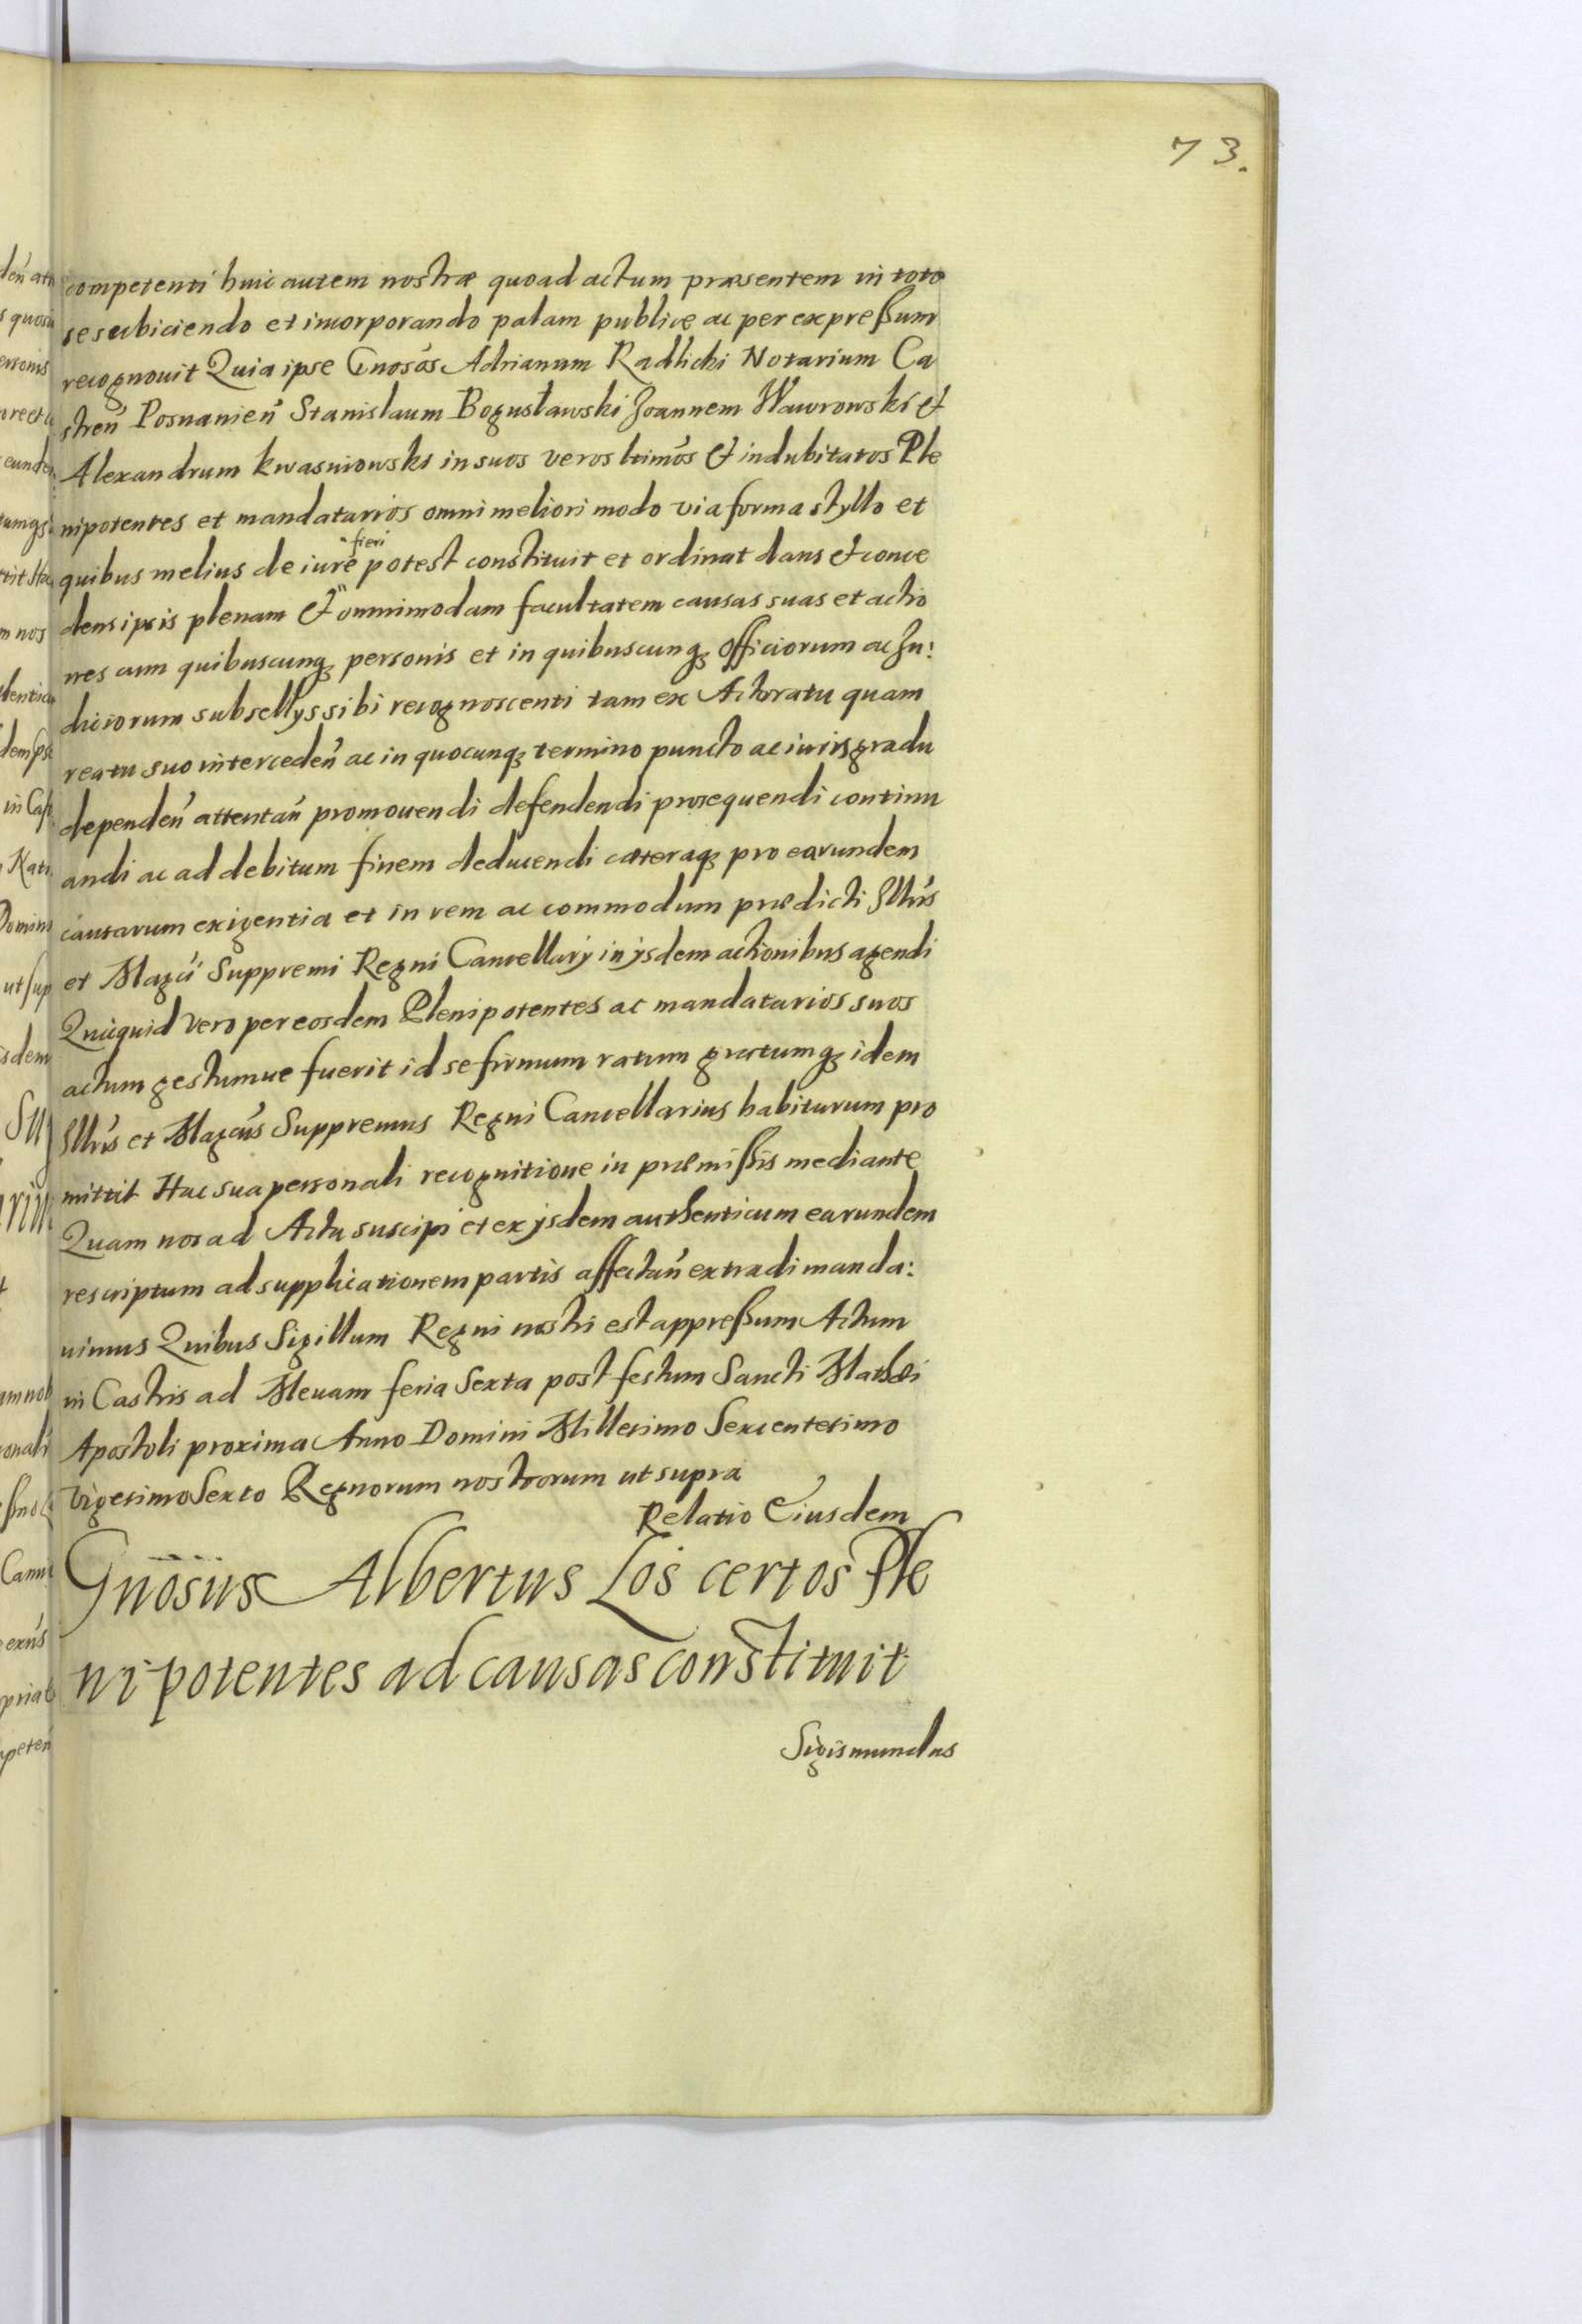 73.
competenti huic autem nostræ quoad actum præsentem in toto
se subiciendo et incorporando palam publice ac per expreßum
recognouit Quia ipse Gnosos Adrianum Radlicki Notarium Ca
stren̄ Posnanien̄ Stanislaum Bogusławski Joannem Wawrowski et
Alexandrum Kwasniowski in suos veros ltimos et indubitatos Ple
nipotentes et mandatarios omni meliori modo via forma styllo et
fieri
quibus melius de iure potest constituit et ordinat dans et conce
dens ipsis plenam et omnimodam facultatem causas suas et actio
nes cum quibuscunqꝫ personis et in quibuscunqꝫ officiorum ac Ju:
diciorum subsellys sibi recognoscenti tam ex Actoratu quam
reatu suo interceden̄ ac in quocunqꝫ termino puncto ac iuris gradu
dependen̄ attentan̄ promouendi defendendi prosequendi continu
andi ac ad debitum finem deducendi cæteraqꝫ pro earundem
causarum exigentia et in rem ac commodum prædicti Jllris
et Magci Suppremi Regni Cancellarÿ in ÿsdem actionibus agendi
Quicquid vero per eosdem Plenipotentes ac mandatarios suos
actum gestumue fuerit id se firmum ratum gratumqꝫ idem
Jllris et Magcus Suppremus Regni Cancellarius habiturum pro
mittit Hac sua personali recognitione in præmißis mediante
Quam nos ad Acta suscipi et ex ÿsdem authenticum earundem
rescriptum ad supplicationem partis affectan̄ extradi manda:
uimus Quibus Sigillum Regni nostri est appreßum Actum
in Castris ad Meuam feria Sexta post festum Sancti Mathæi
Apostoli proxima Anno Domini Millesimo Sexcentesimo
Vigesimo Sexto Regnorum nostrorum ut supra
Relatio Eiusdem
Gnosus Albertus Łoś certos Ple
nipotentes ad causas constituit
Sigismundus